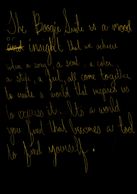 The Boogie Suite is a mood
or insight that we achieve
when a song, a seat, a color,
a style, a fuel, all come together
to make a world that inspires us
to express it. It's a world
you find that becomes a tool
to find yourself.